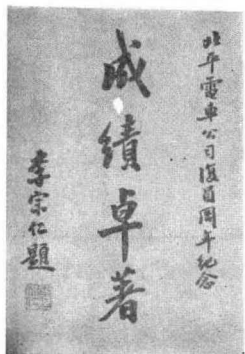 北平電車公司復員周年紀念
成績卓著
李宗仁題